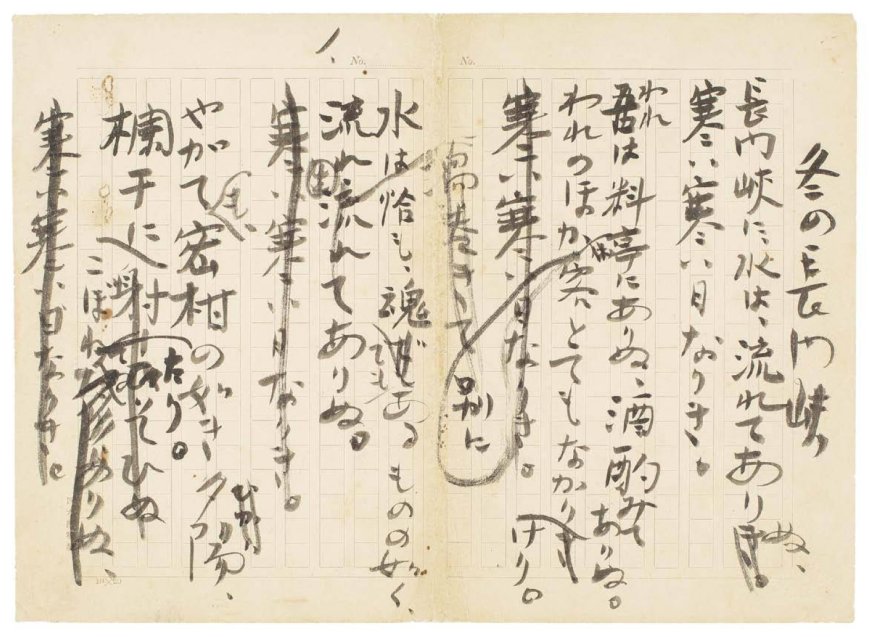 No.
No.
冬の長門峡
長門峡に、水は、流れてありき。
ぬ、
寒い寒い日なりき。
われ
吾は料亭にありぬ、酒酌みて
ありぬ。
われのほか客とてもなかりき
けり。
寒い寒い日なりき。
別に
水は恰も、魂ある
ものの如く、
流れ流れてありぬ。
寒い寒い日なりき。
やがて密柑の如き夕陽、
も、
欄干に
こぼれ
ありぬ、
たり。
寒い寒い日なりき。